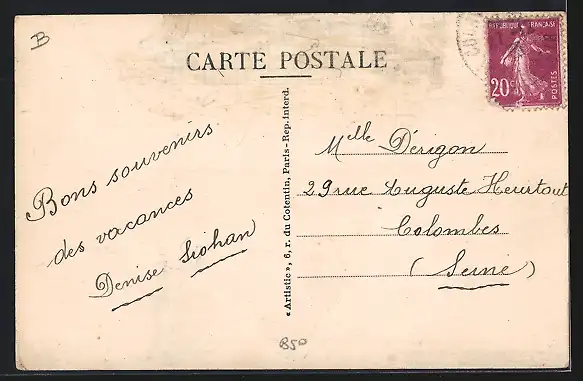 B
CARTE POSTALE
REPUBLIQUE FRANÇAISE
20c
POSTES
Bons souvenirs
des vacances
Denise Siohan
« Artistic », 6, r. du Cotentin, Paris - Rep. interd.
Melle Dérigon
29 rue Auguste Heurtout
Colombes
(Seine)
850